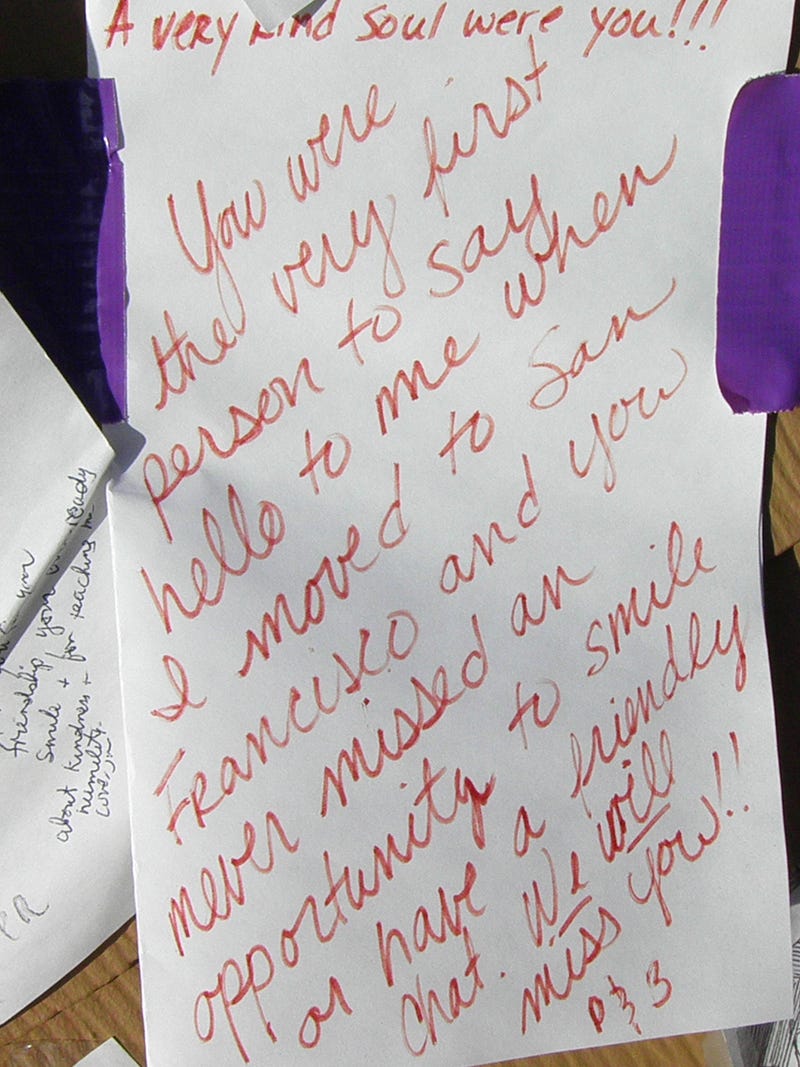 A very kind soul were you!!!
You were
the very first
person to say
hello to me when
I moved to San
Francisco and you
never missed an
opportunity to smile
or have a friendly
chat. We will
miss you!!
P & B
friendship your
smile + for teaching me
about kindness +
humility.